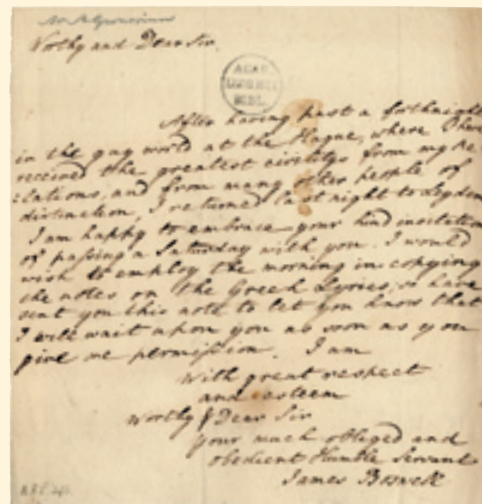 Worthy and Dear Sir.
ACAD
LUGD
BIBL
After having past a forthnight
in the gay world at the Hague, where I have
received the greatest civilitys from my Re
:lations, and from many other people of
distinction, I returned last night to Leyden
I am happy to embrace your kind invitation
of passing a Saturday with you. I would
wish to employ the morning in copying
the notes on the Greek Lyrics; so have
sent you this note to let you know that
I will wait upon you as soon as you
give me permission. I am
With great respect
and esteem
Worthy & Dear Sir
your much obliged and
obedient Humble Servant
James Boswell